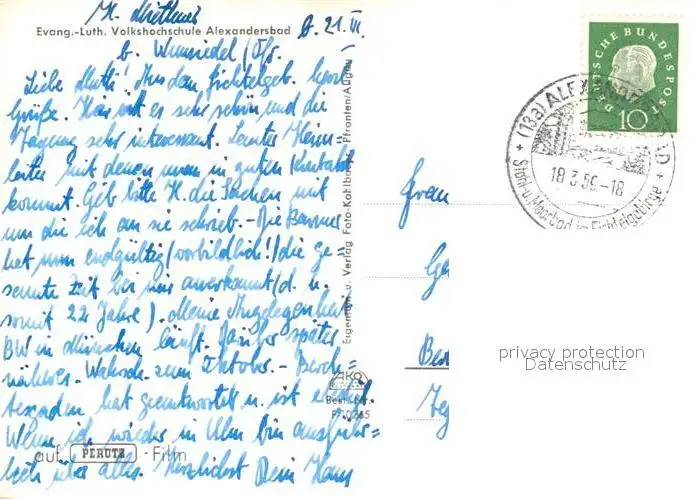 Evang.-Luth. Volkshochschule Alexandersbad
b. Wunsiedel/Ofr.
Liebe Mutti! Aus dem Fichtelgeb.
Grüße. Hier ist es sehr schön und die
Tagung sehr interessant. Lauter Heim-
leiter mit denen man in guten Kontakt
kommt. Gib bitte H. die Sachen mit
um die ich an sie schrieb. - Die
hat nun endgültig (vorbildlich!) die ge-
samte Zeit bei uns anerkannt (d. h.
somit 22 Jahre). Meine Angelegenheit
BW in München läuft. Darüber später
näheres. Wahrsch. zum Oktober. - Berch-
tesgaden hat geantwortet u. ist
Wenn ich wieder in Ulm bin ausführ=
lich über alles. Herzlichst Dein Hans
auf PERUTZ - Film
Eigentum u. Verlag Foto-Kohlbauer, Pfronten/Allgäu
Frau
DEUTSCHE BUNDESPOST
10
(13a) ALEXANDERSBAD
18.3.59.-18
Stahl-u. Moorbad im Fichtelgebirge
privacy protection
Datenschutz